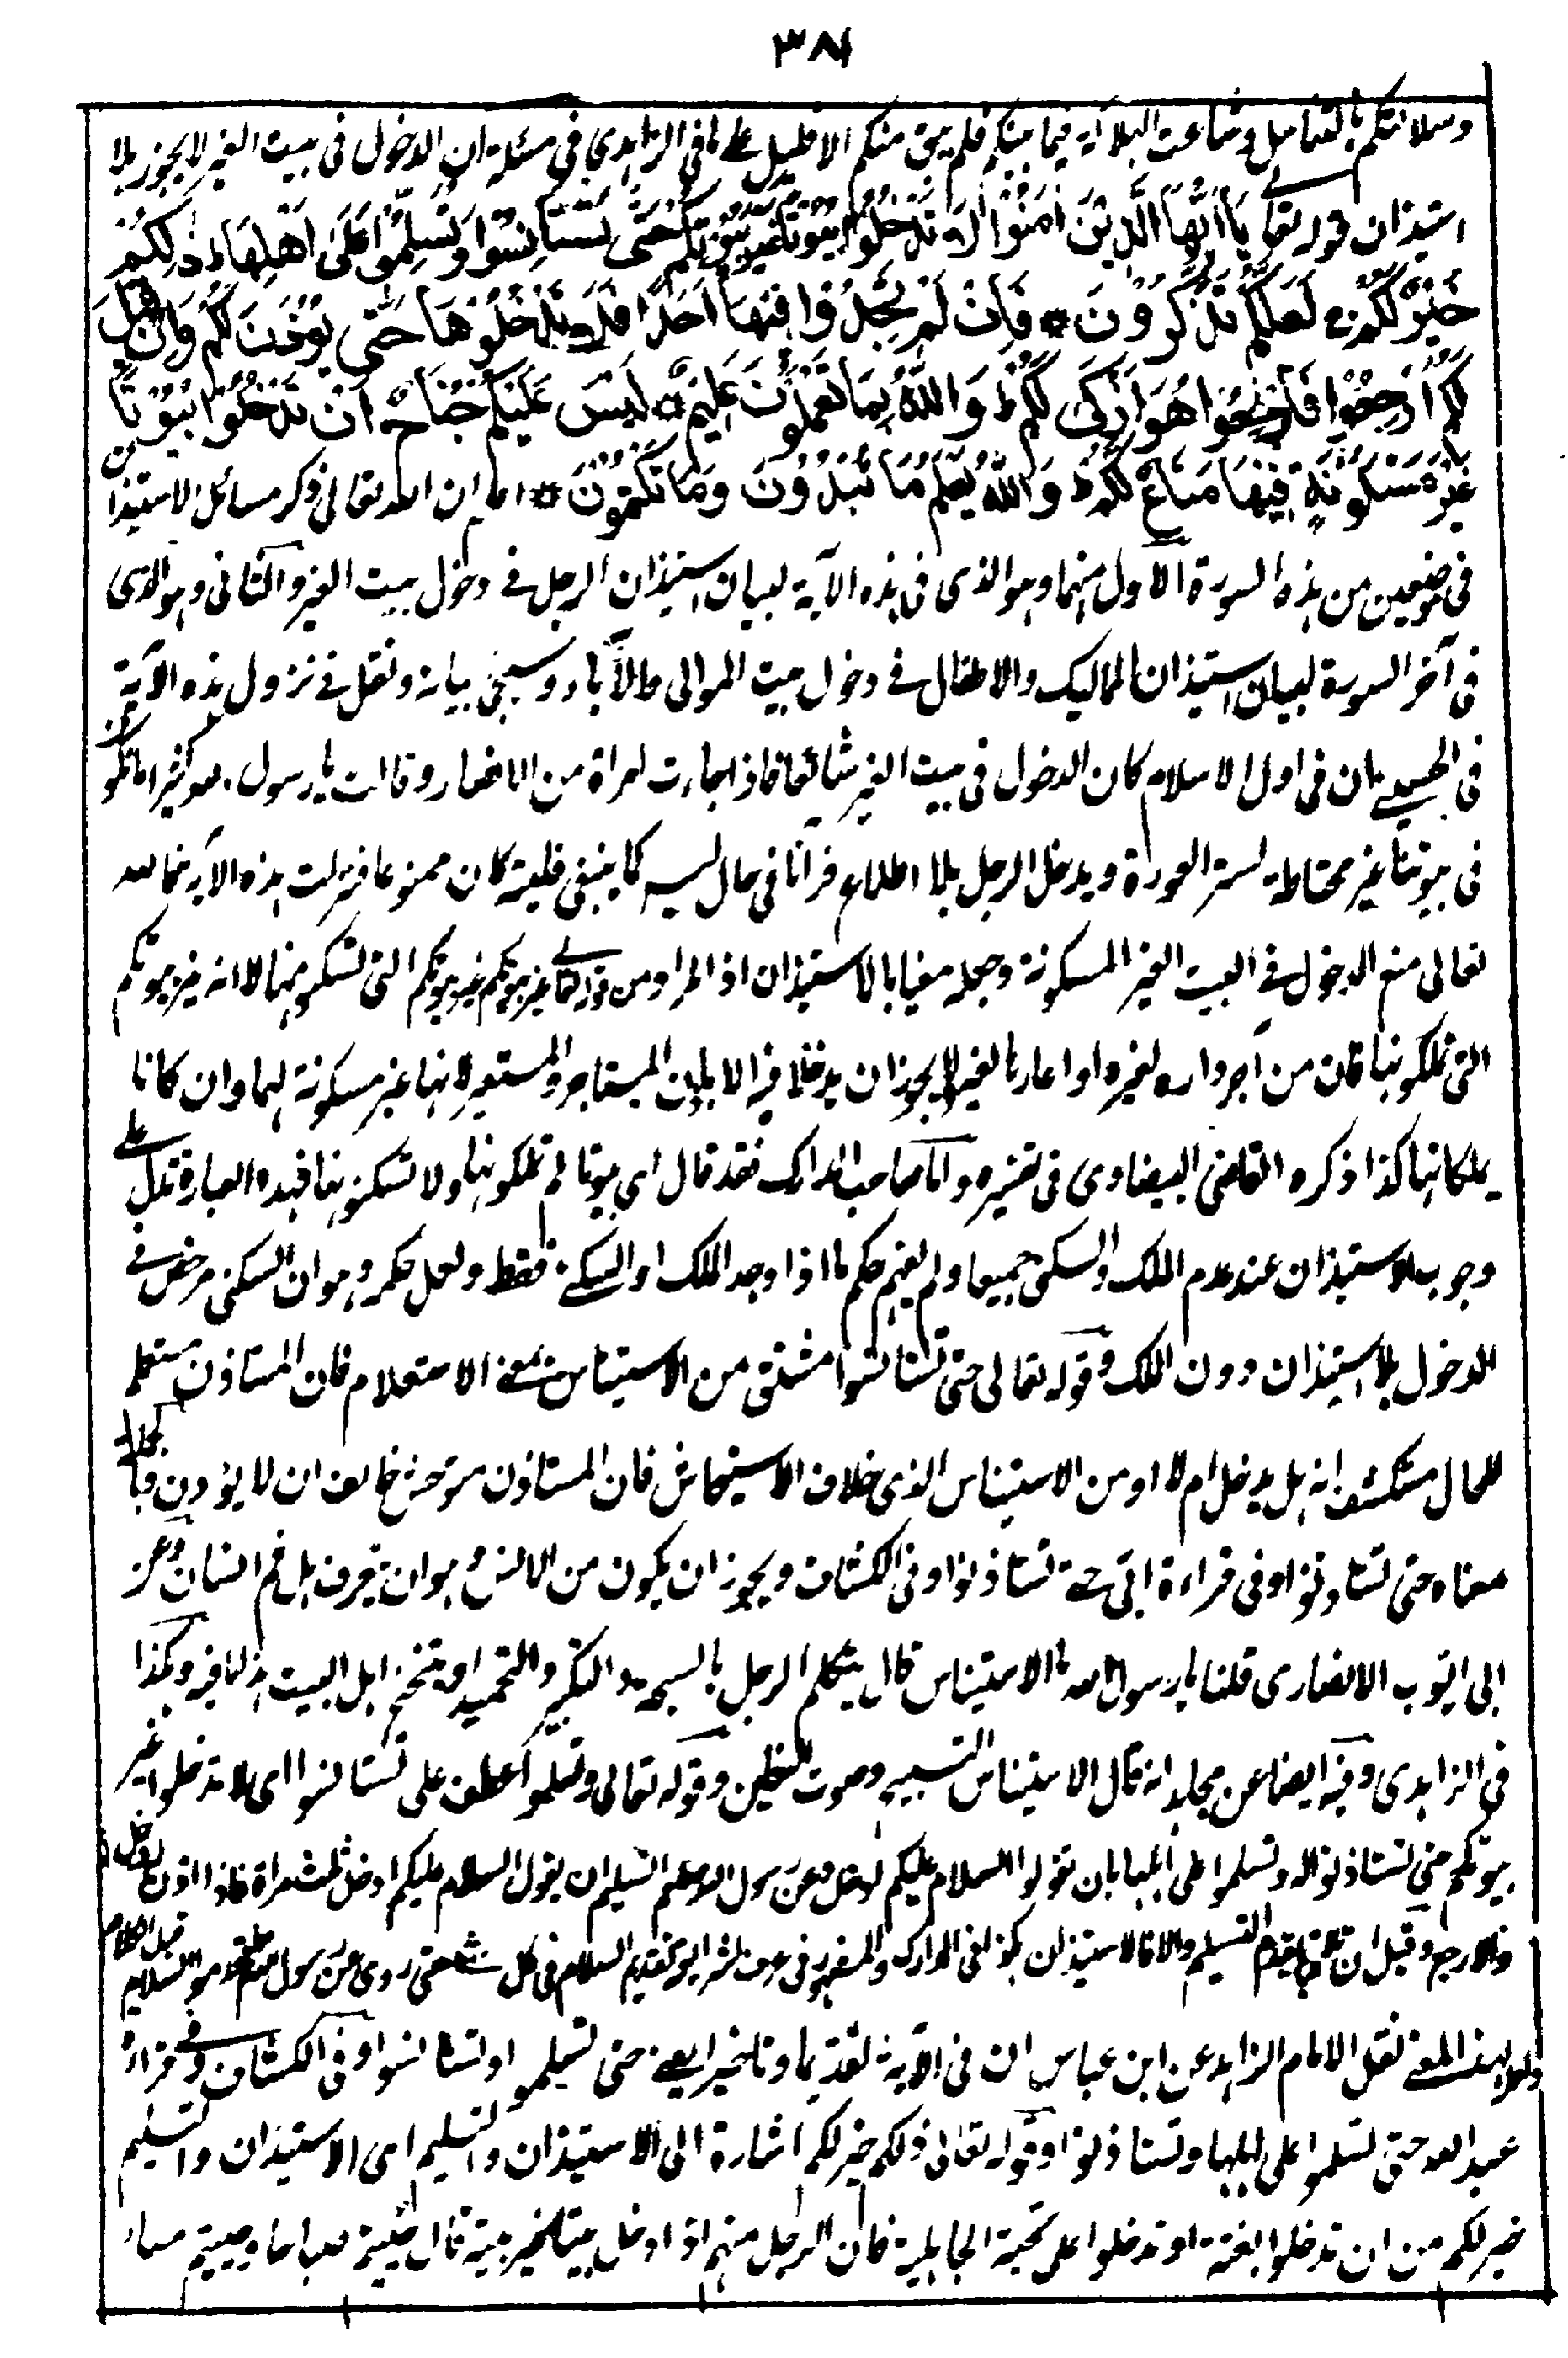 ٣٨٤
وسلامتكم بالتعامل وشاعت البلاية فيما بينكم فلم يبق منكم الا قليل على ما فى الزاهدي في مسئلة ان الدخول فى بيت الغير لا يجوز بلا
استيذان قوله تعالى يَا أَيُّهَا الَّذِيْنَ اٰمَنُوْا لَا تَدْخُلُوْا بُيُوْتًا غَيْرَ بُيُوْتِكُمْ حَتّٰى تَسْتَأْنِسُوْا وَتُسَلِّمُوْا عَلٰى اَهْلِهَا ذٰلِكُمْ
خَيْرٌ لَّكُمْ لَعَلَّكُمْ تَذَكَّرُوْنَ * فَاِنْ لَّمْ تَجِدُوْا فِيْهَا اَحَدًا فَلَا تَدْخُلُوْهَا حَتّٰى يُؤْذَنَ لَكُمْ وَاِنْ قِيْلَ
لَكُمُ ارْجِعُوْا فَارْجِعُوْا هُوَ اَزْكٰى لَكُمْ ط وَاللّٰهُ بِمَا تَعْمَلُوْنَ عَلِيْمٌ * لَيْسَ عَلَيْكُمْ جُنَاحٌ اَنْ تَدْخُلُوْا بُيُوْتًا
غَيْرَ مَسْكُوْنَةٍ فِيْهَا مَتَاعٌ لَّكُمْ ط وَاللّٰهُ يَعْلَمُ مَا تُبْدُوْنَ وَمَا تَكْتُمُوْنَ * اعلم ان الله تعالى ذكر مسائل الاستيذان
فى موضعين من هذه السورة الاول منهما وهو الذى فى هذه الآية لبيان استيذان الرجل فى دخول بيت الغير والثانى وهو الذى
فى آخر السورة لبيان استيذان المماليك والاطفال فى دخول بيت الموالى والآباء وسيجئ بيانه ونقل فى نزول هذه الآية
فى الحسينى ان فى اول الاسلام كان الدخول فى بيت الغير شائعا فاذا جاءت امراة من الانصار وقالت يا رسول الله كثيرا ما نكون
فى بيوتنا غير محتاط لستر العورة ويدخل الرجل بلا اطلاع فرآنا فى حال ليس كما ينبغى فليته كان ممنوعا فنزلت هذه الآية فالله
تعالى منع الدخول فى البيت الغير المسكونة وجعله مغيا بالاستيذان اذ المراد من قوله تعالى غير بيوتكم غير بيوتكم التى تسكنونها لا انه غير بيوتكم
التى تملكونها فان من آجر داره لغيره او اعارها لغيره لا يجوز ان يدخلا فيه الا باذن المستاجر والمستعير لانها غير مسكونة لهما وان كانا
يملكانها كذا ذكره القاضى البيضاوى فى تفسيره واما صاحب المدارك فقد قال اى بيوتا لم تملكونها ولا تسكنونها فهذه العبارة تدل على
وجوب الاستيذان عند عدم الملك والسكنى جميعا ولم يفهم حكم ما اذا وجد الملك او السكنى فقط ولعل حكمه وهو ان السكنى مرخص فى
الدخول بلا استيذان دون الملك وقوله تعالى حتى تستانسوا مشتق من الاستيناس بمعنى الاستعلام فان المستاذن مستعلم
للحال مستكشف انه هل يدخل ام لا او من الاستيناس الذى خلاف الاستيحاش فان المستاذن متوحش خائف ان لا يؤذن
معناه حتى تستاذنوا وفى قراءة ابى حتى تستاذنوا وفى الكشاف ويجوز ان يكون من الانس وهو ان يتعرف هل ثم انسان وعن
ابى ايوب الانصارى قلنا يا رسول الله ما الاستيناس قال يتكلم الرجل بالتسبيحة والتكبير والتحميد او يتنحنح اهل البيت هذا ما فيه وهكذا
فى الزاهدى وفيه ايضا عن مجاهد انه قال الاستيناس التسبيح وصوت النعلين وقوله تعالى وتسلموا عطف على تستانسوا اى لا تدخلوا غير
بيوتكم حتى تستاذنوا وتسلموا على اهلها بان تقولوا السلام عليكم أدخل وعن رسول الله صلعم التسليم ان يقول السلام عليكم ادخل ثلث مراة فاذا اذن دخل
والا رجع وقيل ان تلاقيا يقدم التسليم والا فالاستيذان كذا فى المدارك والمشهور فى عرف الشرع ايضا تقديم السلام فى كل شئ حتى روى عن رسول الله صلعم هو السلام قبل الكلام
ولهذا المعنى نقل الامام الزاهد عن ابن عباس ان فى الآية تقديما وتاخيرا يعنى حتى تسلموا وتستانسوا وفى الكشاف وفى قراءة
عبد الله حتى تسلموا على اهلها وتستاذنوا وقوله تعالى ذلكم خير لكم اشارة الى الاستيذان والتسليم اى الاستيذان والتسليم
خير لكم من ان تدخلوا بغتة او تدخلوا على تحية الجاهلية فان الرجل منهم اذا دخل بيتا غير بيته قال حييتم صباحا وحييتم مساء